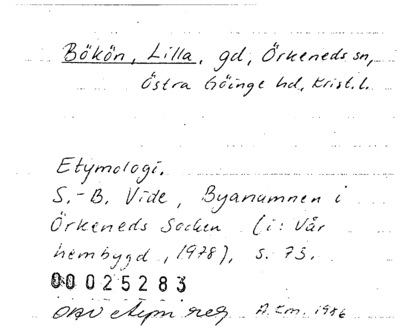 Bökön, Lilla, gd, Örkeneds sn,
Östra Göinge hd, Krist. l.
Etymologi.
S.-B. Vide, Byanamnen i
Örkeneds Socken (i: Vår
hembygd, 1978), s. 73.
00025283
1986